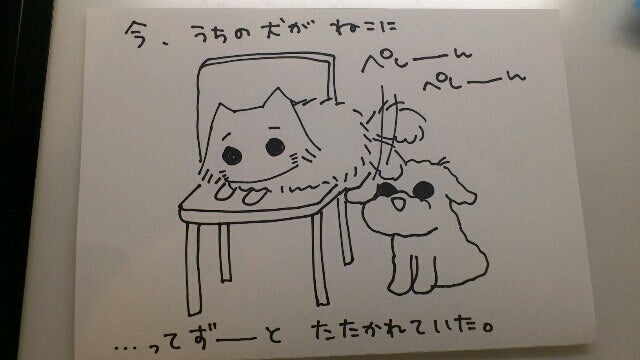 今、うちの犬がねこに
ペしーーん
ペしーーん
...ってずーーと たたかれていた。